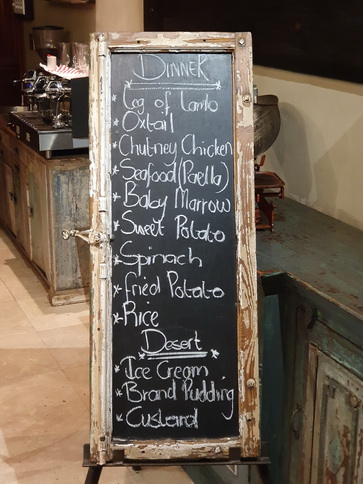 DINNER
* Leg of Lamb
* Oxtail
* Chutney Chicken
* Seafood (Paella)
* Baby Marrow
* Sweet Potato
* Spinach
* Fried Potato
* Rice
Desert
* Ice Cream
* Brand Pudding
* Custard